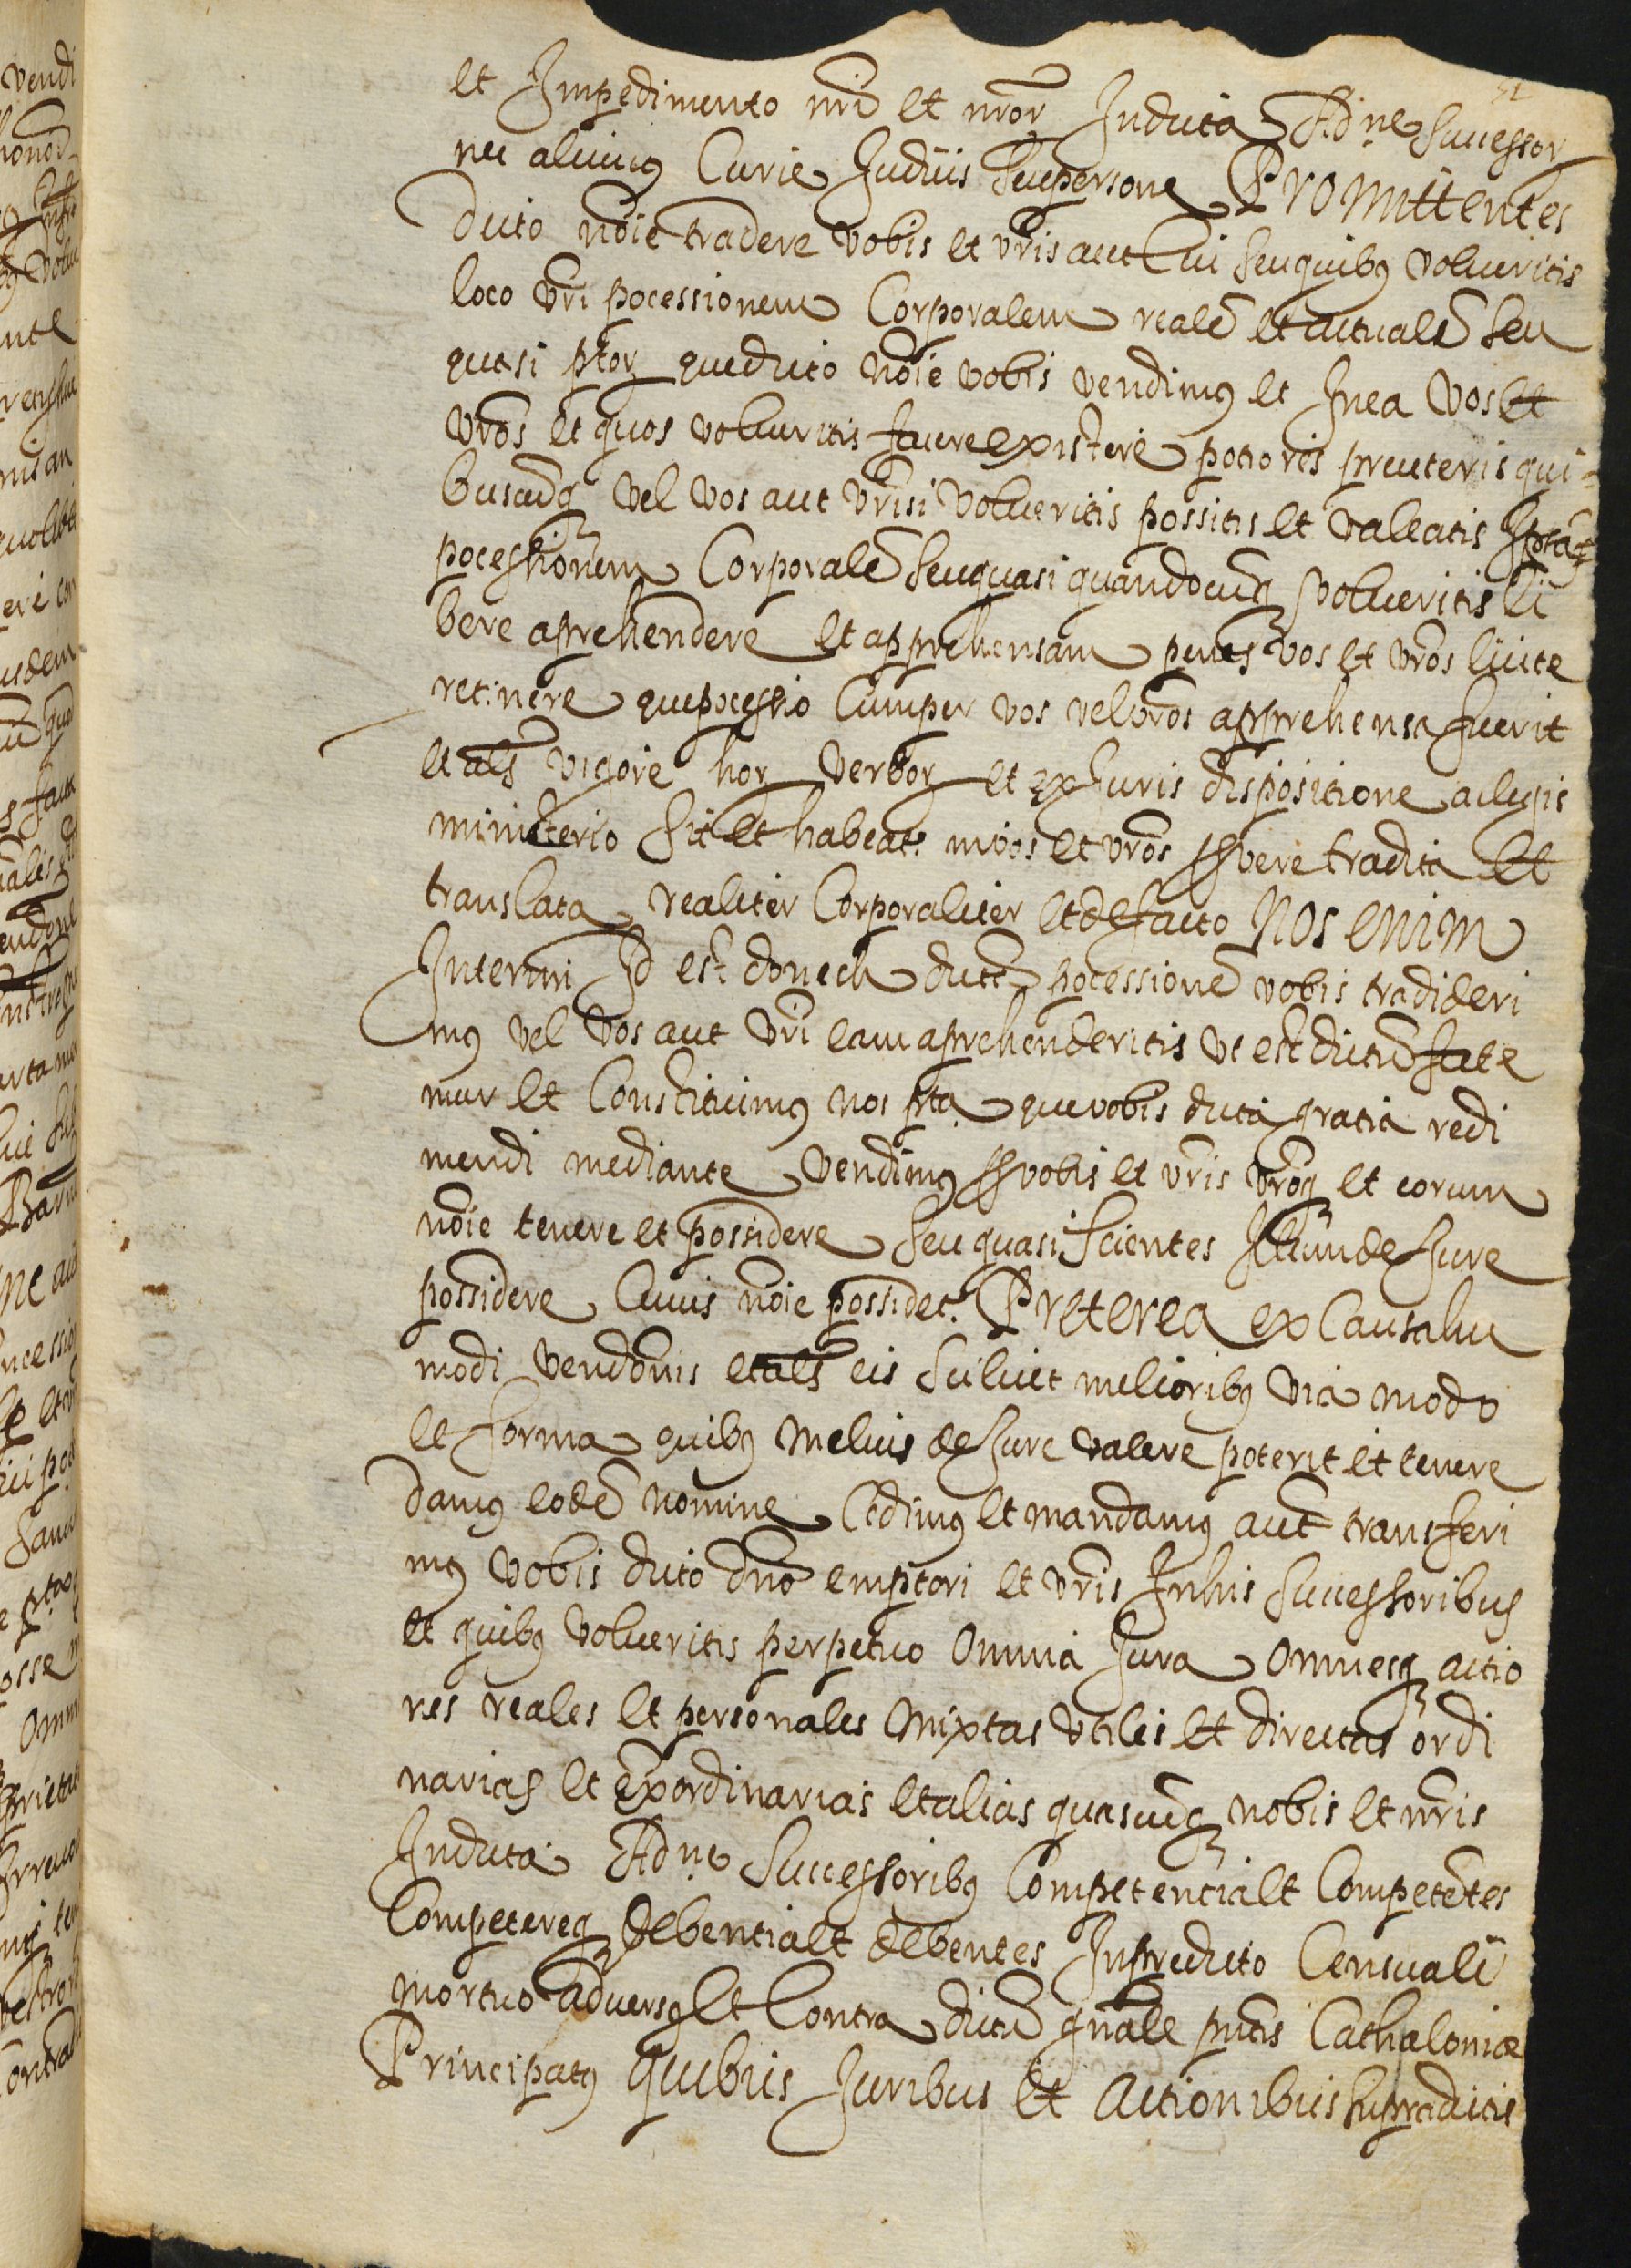 et Impedimento nri et nror In dicta Adne successor
nec alicuius Curie Judicis seu persone Promittentes
dicto noie tradere vobis et vris aut cui seu quibus volueritis
loco vri pocessionem Corporalem realem et actualem seu
quasi ptor que dicto noie vobis vendimus et In ea vos et
vros et quos volueritis facere existere potiores pre ceteris qui
buscumq vel vos aut vri si volueritis possitis et valeatis
pocessionem Corporalem seu quasi quandocumq volueritis li
bere aprehendere et apprehensam penes vos et vros licite
retinere que pocessio cum per vos vel vros apprehensa fuerit
et als vigore hor verbor et ex Juris dispositione ac legis
ministerio sit et habeatr in vos et vros vere tradita et
translata realiter Corporaliter et de facto Nos enim
Interim Id est donech dictam pocessionem vobis tradideri
mus vel vos aut vri eam aprehenderitis ut est dictum fate
mur et Constituimus nos pta que vobis dicta gratia redi
mendi mediante vendimus vobis et vris vroq et eorum
noie tenere et possidere seu quasi scientes Illum de Jure
possidere cuius noie possidetr Preterea ex Causa hui
modi vendonis et als eis scilicet melioribus via modo
et forma quibus melius de Jure valere poterit et tenere
damus eodem nomine Cedimus et mandamus aut transferi
mus vobis dicto dno emptori et vris In his successoribus
et quibus volueritis perpetuo omnia Jura omnesq actio
nes reales et personales mixtas utiles et directas ordi
narias et exordinarias et alias quascumq nobis et nris
In dicta Adne successoribus Competencia et Competentes
Competereq debentia et debentes In predicto Censuali
mortuo adversus et Contra dictum gnale pntis Cathaloniae
Principatus quibus Juribus et Actionibus supradictis